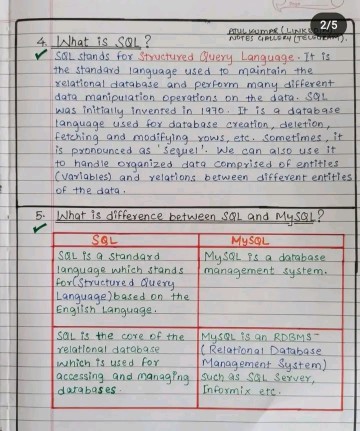 2/5
ATUL KUMAR (LINKEDIN)
NOTES GALLERY (TELEGRAM).
4. What is SQL?
SQL stands for Structured Query Language. It is
the standard language used to maintain the
relational database and perform many different
data manipulation operations on the data. SQL
was initially invented in 1970. It is a database
language used for database creation, deletion,
fetching and modifying rows, etc. Sometimes, it
is pronounced as 'sequel'. We can also use it
to handle organized data comprised of entities
(variables) and relations between different entities
of the data.
5. What is difference between SQL and MySQL?
SQL
MySQL
SQL is a standard
language which stands
for(Structured Query
Language)based on the
English Language.
MySQL is a database
management system.
SQL is the core of the
relational database
which is used for
accessing and managing
databases.
MySQL is an RDBMS
(Relational Database
Management System)
such as SQL Server,
Informix etc.